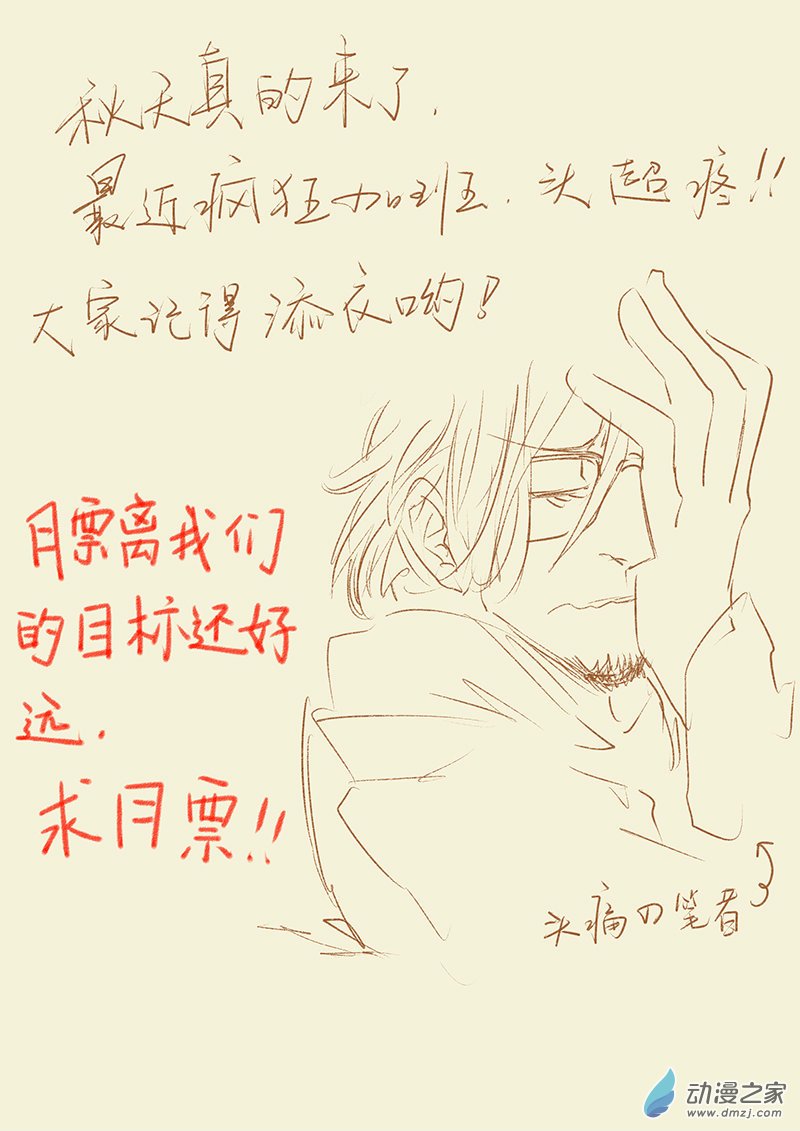 秋天真的来了.
最近疯狂加班.头超疼!!
大家记得添衣哟!
月票离我们
的目标还好
远.
求月票!!
头痛の笔者
动漫之家
www.dmzj.com